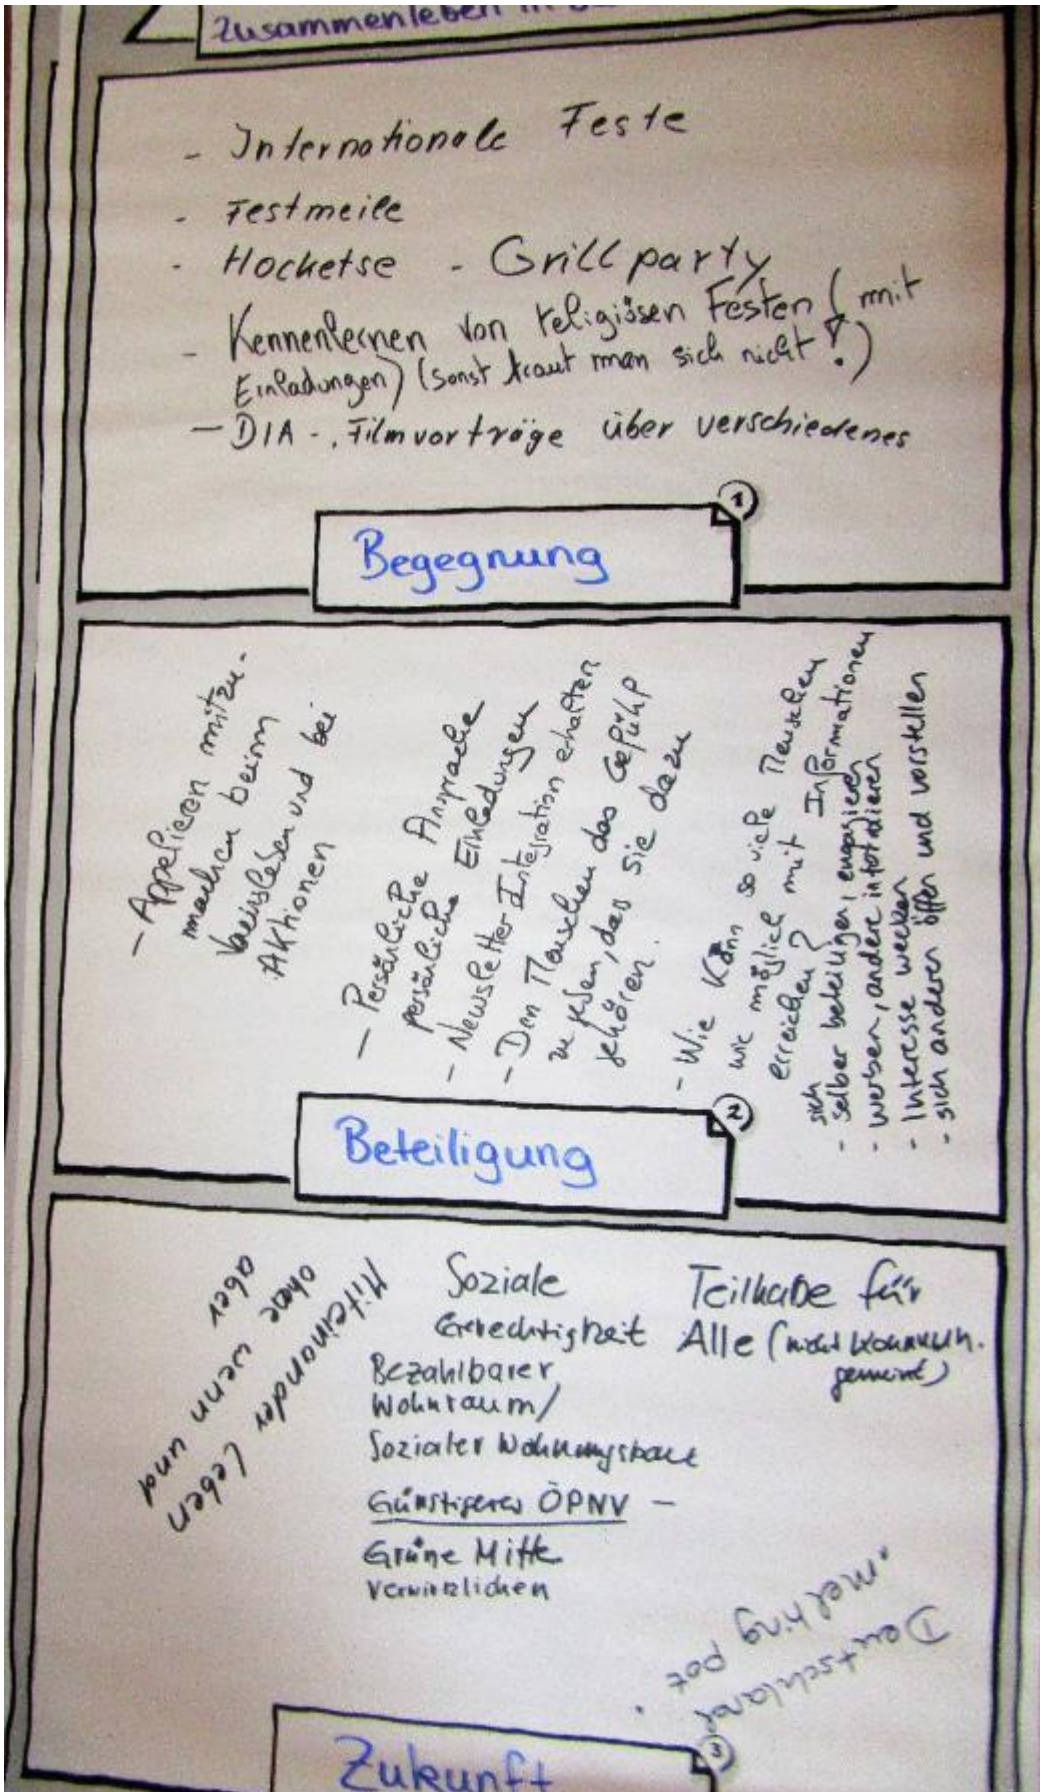 Zusammenleben in
- Internationale Feste
- Festmeile
- Hocketse - Grillparty
- Kennenlernen von religiösen Festen (mit
Einladungen) (sonst traut man sich nicht!)
- DIA-, Filmvorträge über verschiedenes
1
Begegnung
- Appelieren mitzu-
machen beim
und bei
Aktionen
- Persönliche Ansprache
persönliche Einladungen
- Newsletter Integration erhalten
- Den Menschen das Gefühl
zu geben, das sie dazu
gehören.
- Wie kann so viele Menschen
wie möglich mit Informationen
erreichen?
sich
- selber beteiligen, engagieren
- werben, andere
- Interesse wecken
- sich anderen öffen und vorstellen
2
Beteiligung
Miteinander Leben
ohne wenn und
aber
Soziale
Gerechtigkeit
Bezahlbarer
Wohnraum/
Sozialer Wohnungsbau
Günstigeres ÖPNV -
Grüne Mitte
verwirklichen
Teilhabe für
Alle (nicht
gemeint)
Deutschland
"melting pot
3
Zukunft